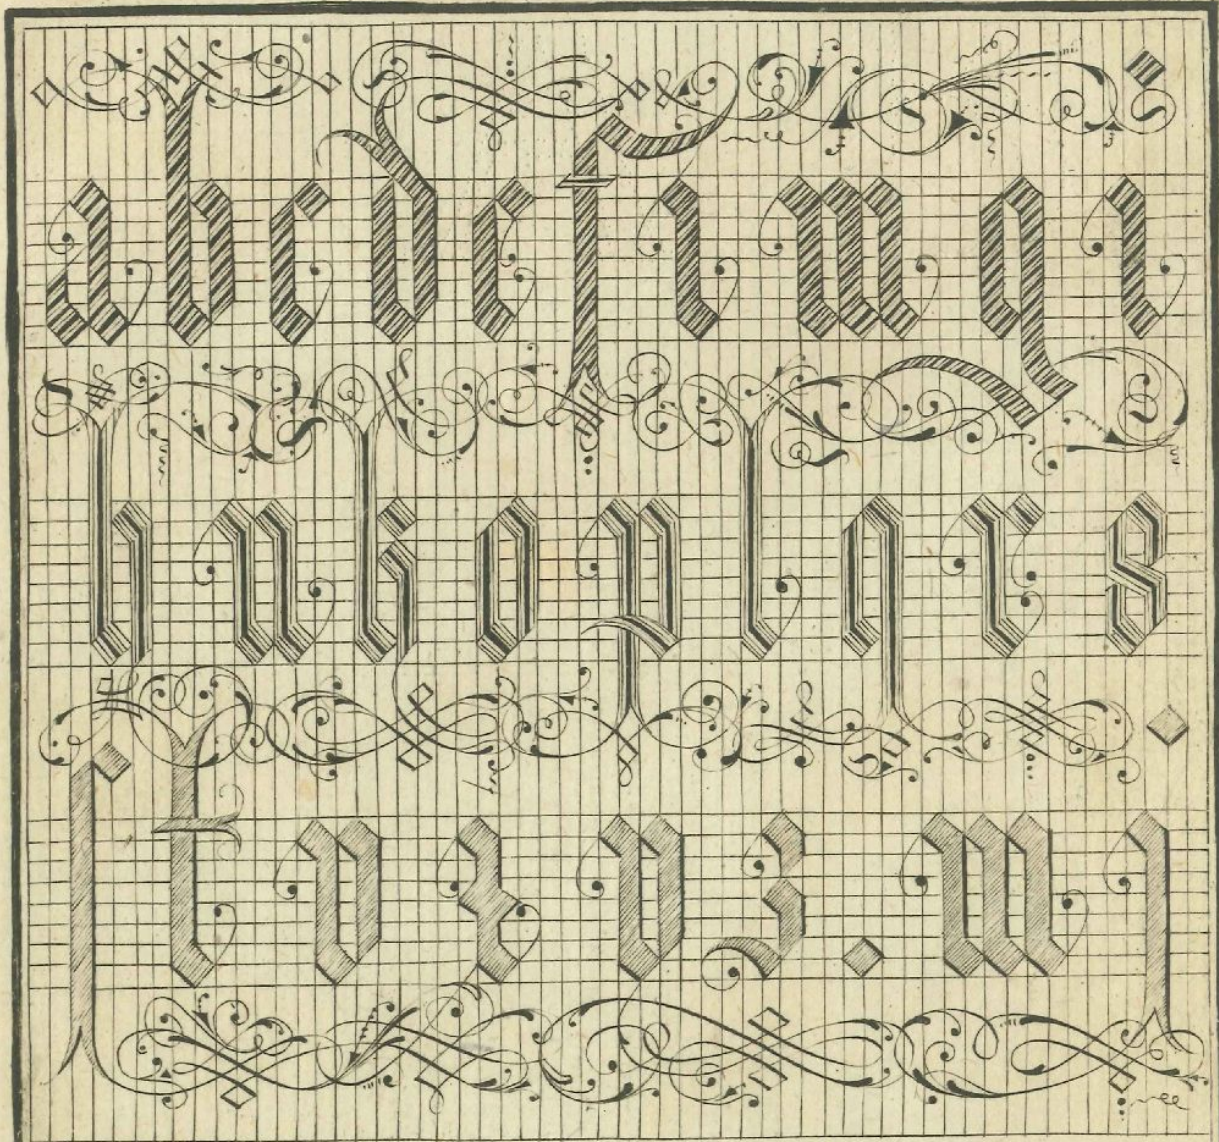 a b c d e f i m g i
h n k o p l q r s
ſ t v x v z . w j